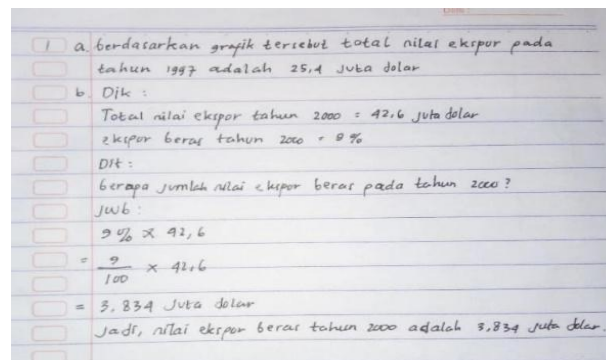 1 a. berdasarkan grafik tersebut total nilai ekspor pada
tahun 1997 adalah 25,4 Juta dolar
b. Dik :
Total nilai ekspor tahun 2000 = 42,6 juta dolar
ekspor beras tahun 2000 = 9 %
Dit :
berapa jumlah nilai ekspor beras pada tahun 2000 ?
Jwb :
9 % x 42,6
= 9/100 x 42,6
= 3,834 Juta dolar
Jadi, nilai ekspor beras tahun 2000 adalah 3,834 juta dolar.